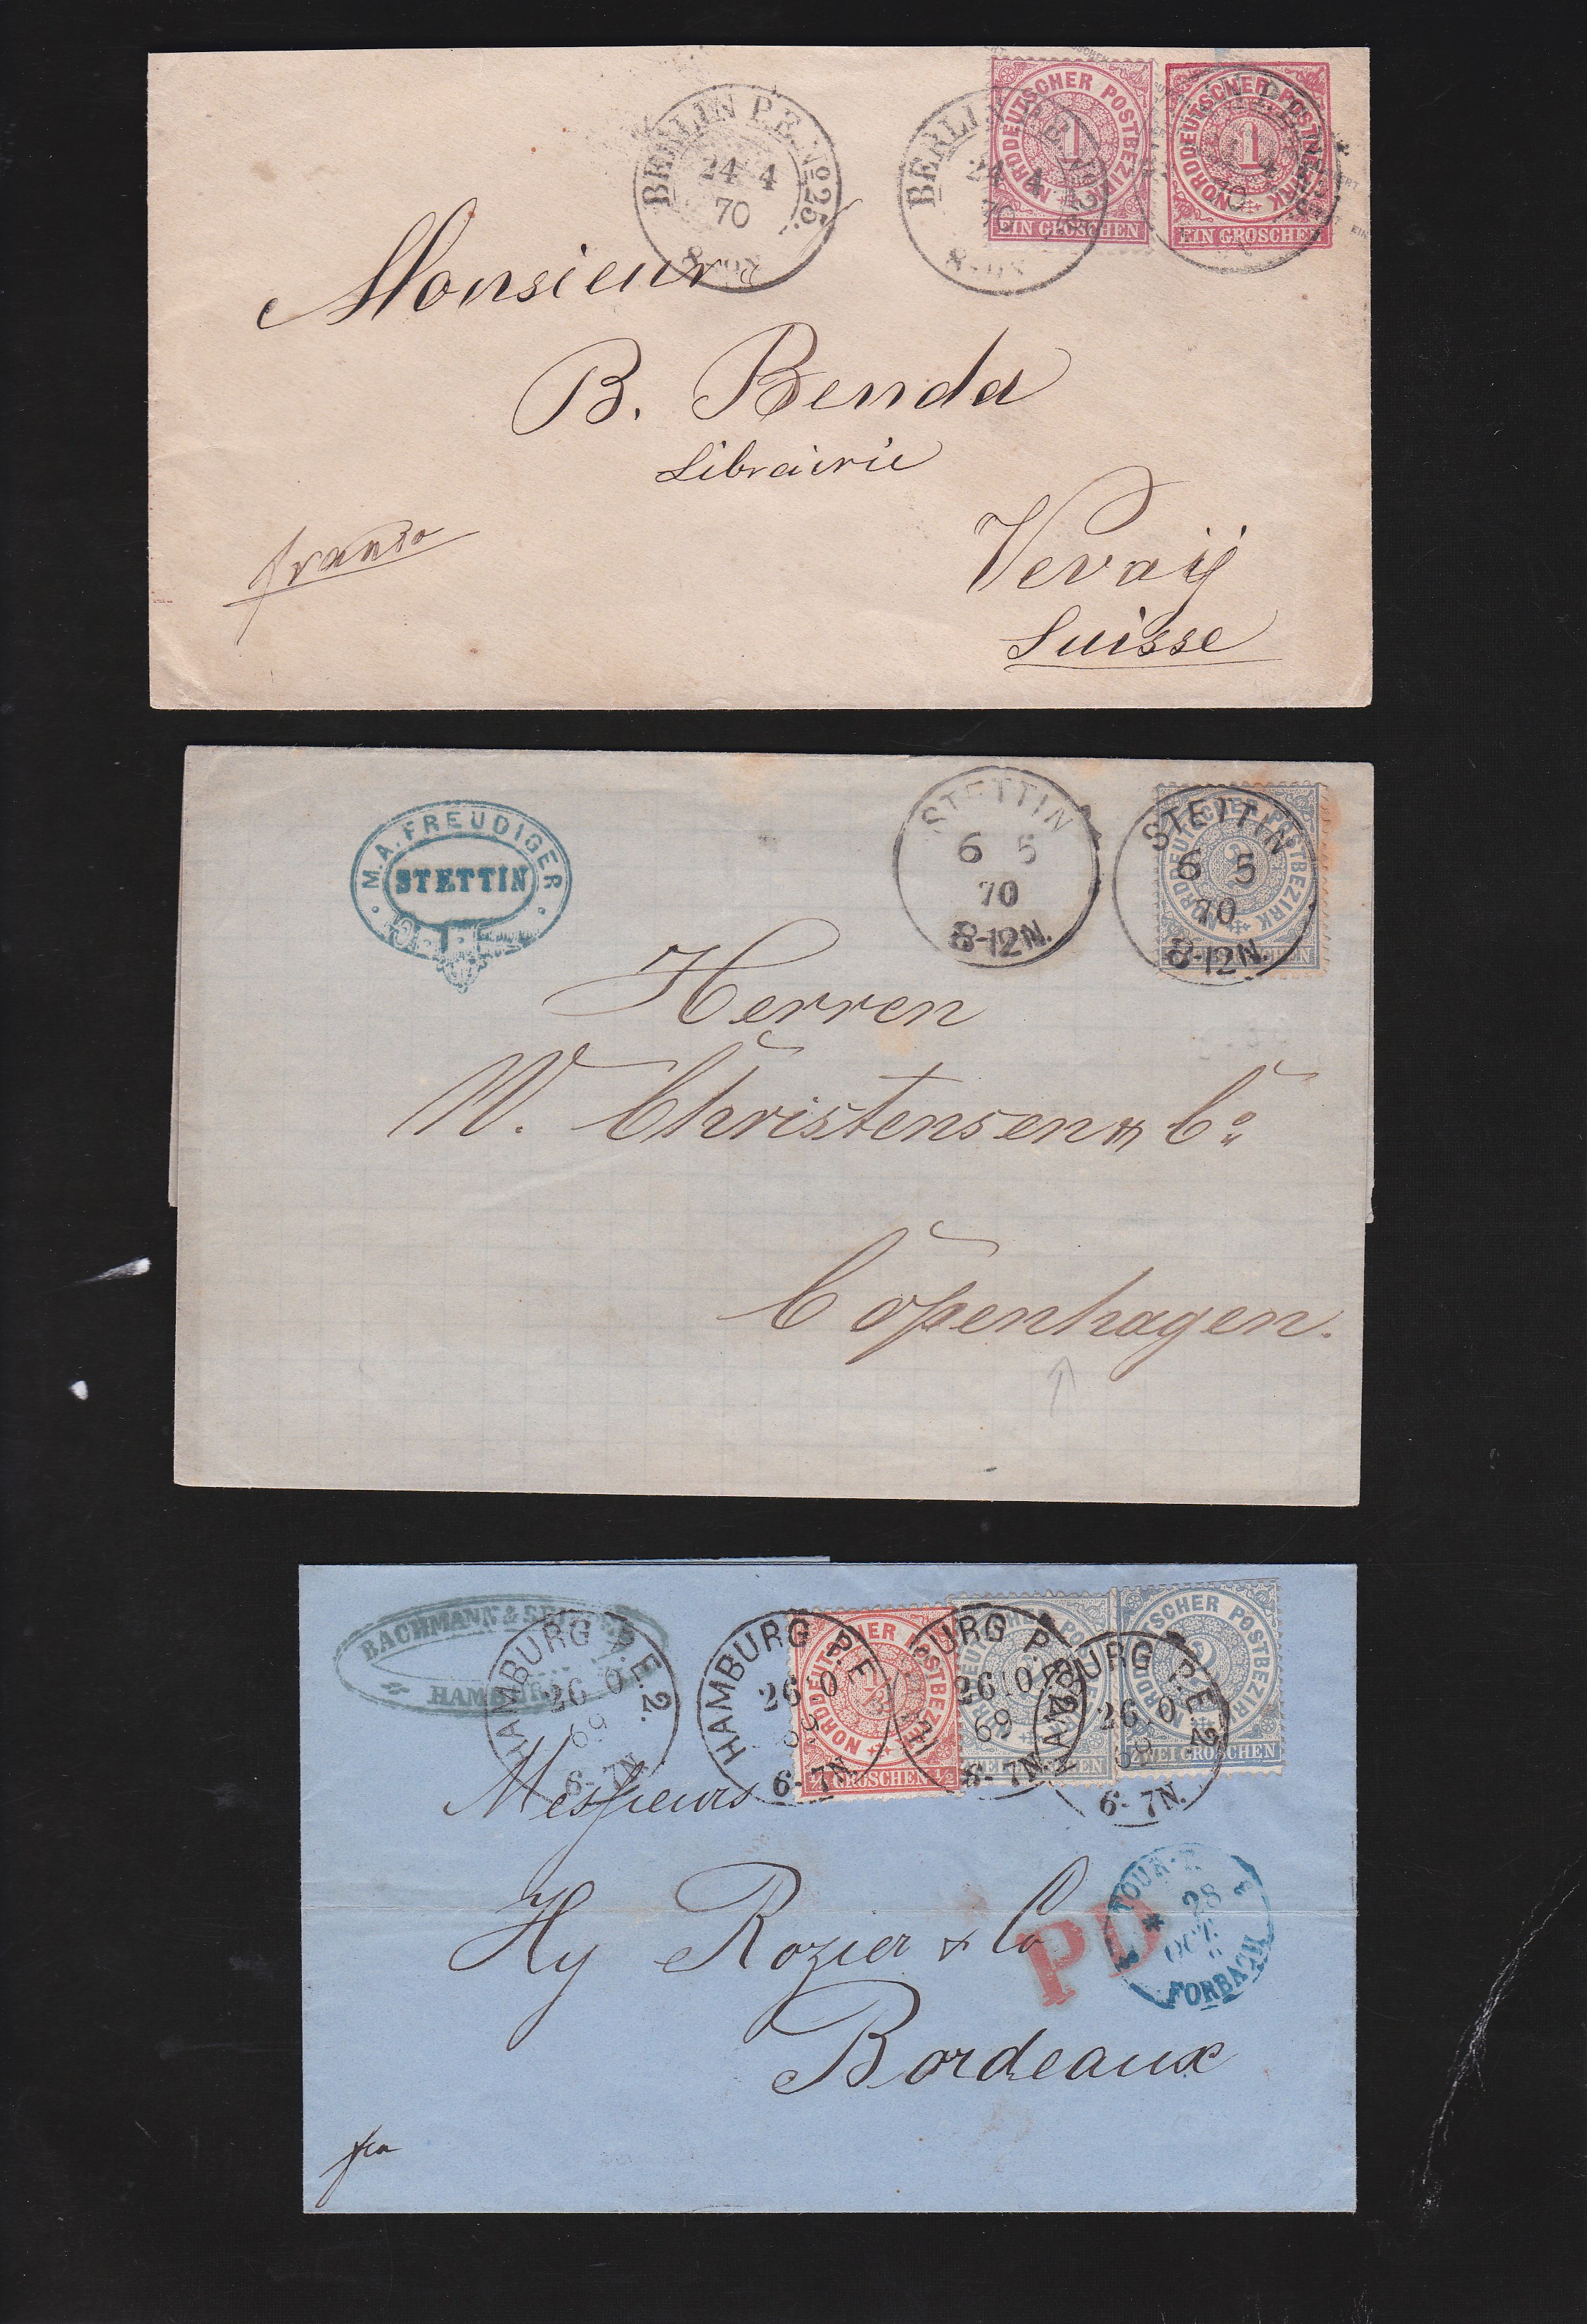 BERLIN P.E. No 25.
24 4
70
NORDDEUTSCHER POSTBEZIRK
1
EIN GROSCHEN
NORDDEUTSCHER POSTBEZIRK
1
EIN GROSCHEN
BERLIN
24 4
70
Monsieur
B. Benda
Librairie
franco
Vevaÿ
Suisse
M.A. FREUDIGER
STETTIN
STETTIN
6 5
70
8-12N.
STETTIN
6 5
70
8-12N.
NORDDEUTSCHER POSTBEZIRK
2
Herren
W. Christensen & Co
Copenhagen.
BACHMANN &
HAMBURG
HAMBURG P.E.2.
26 10
69
6-7N.
HAMBURG P.E.
26 10
6-7N.
NORDDEUTSCHER POSTBEZIRK
1/2
1/2 GROSCHEN 1/2
26 10
69
6-7N.
ZWEI GROSCHEN
HAMBURG P.E.2
26 10
69
6-7N.
POSTBEZIRK
2
ZWEI GROSCHEN
Messieurs
Hy Rozier & Co
Bordeaux
PD
28
OCT.
FORBACH
fco